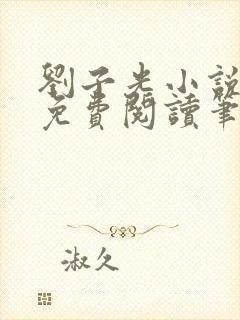 劉子光小說
免費閱讀筆
淑久